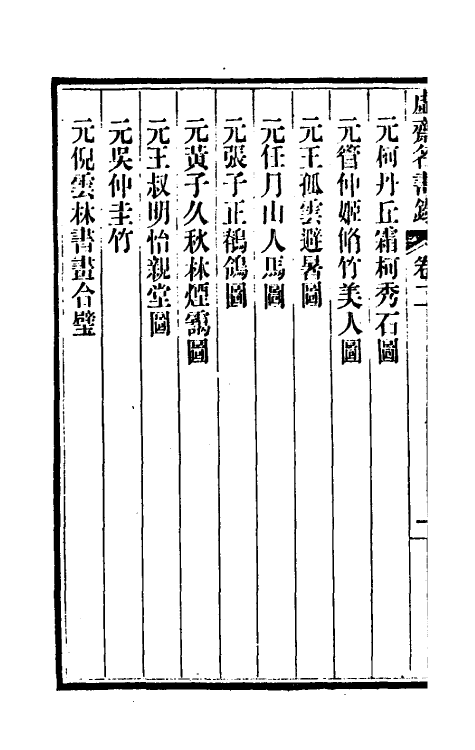 虛齋名畫錄 卷二
一
元柯丹丘霜柯秀石圖
元管仲姬脩竹美人圖
元王孤雲避暑圖
元任月山人馬圖
元張子正鶺鴒圖
元黃子久秋林煙靄圖
元王叔明怡親堂圖
元吳仲圭竹
元倪雲林書畫合璧